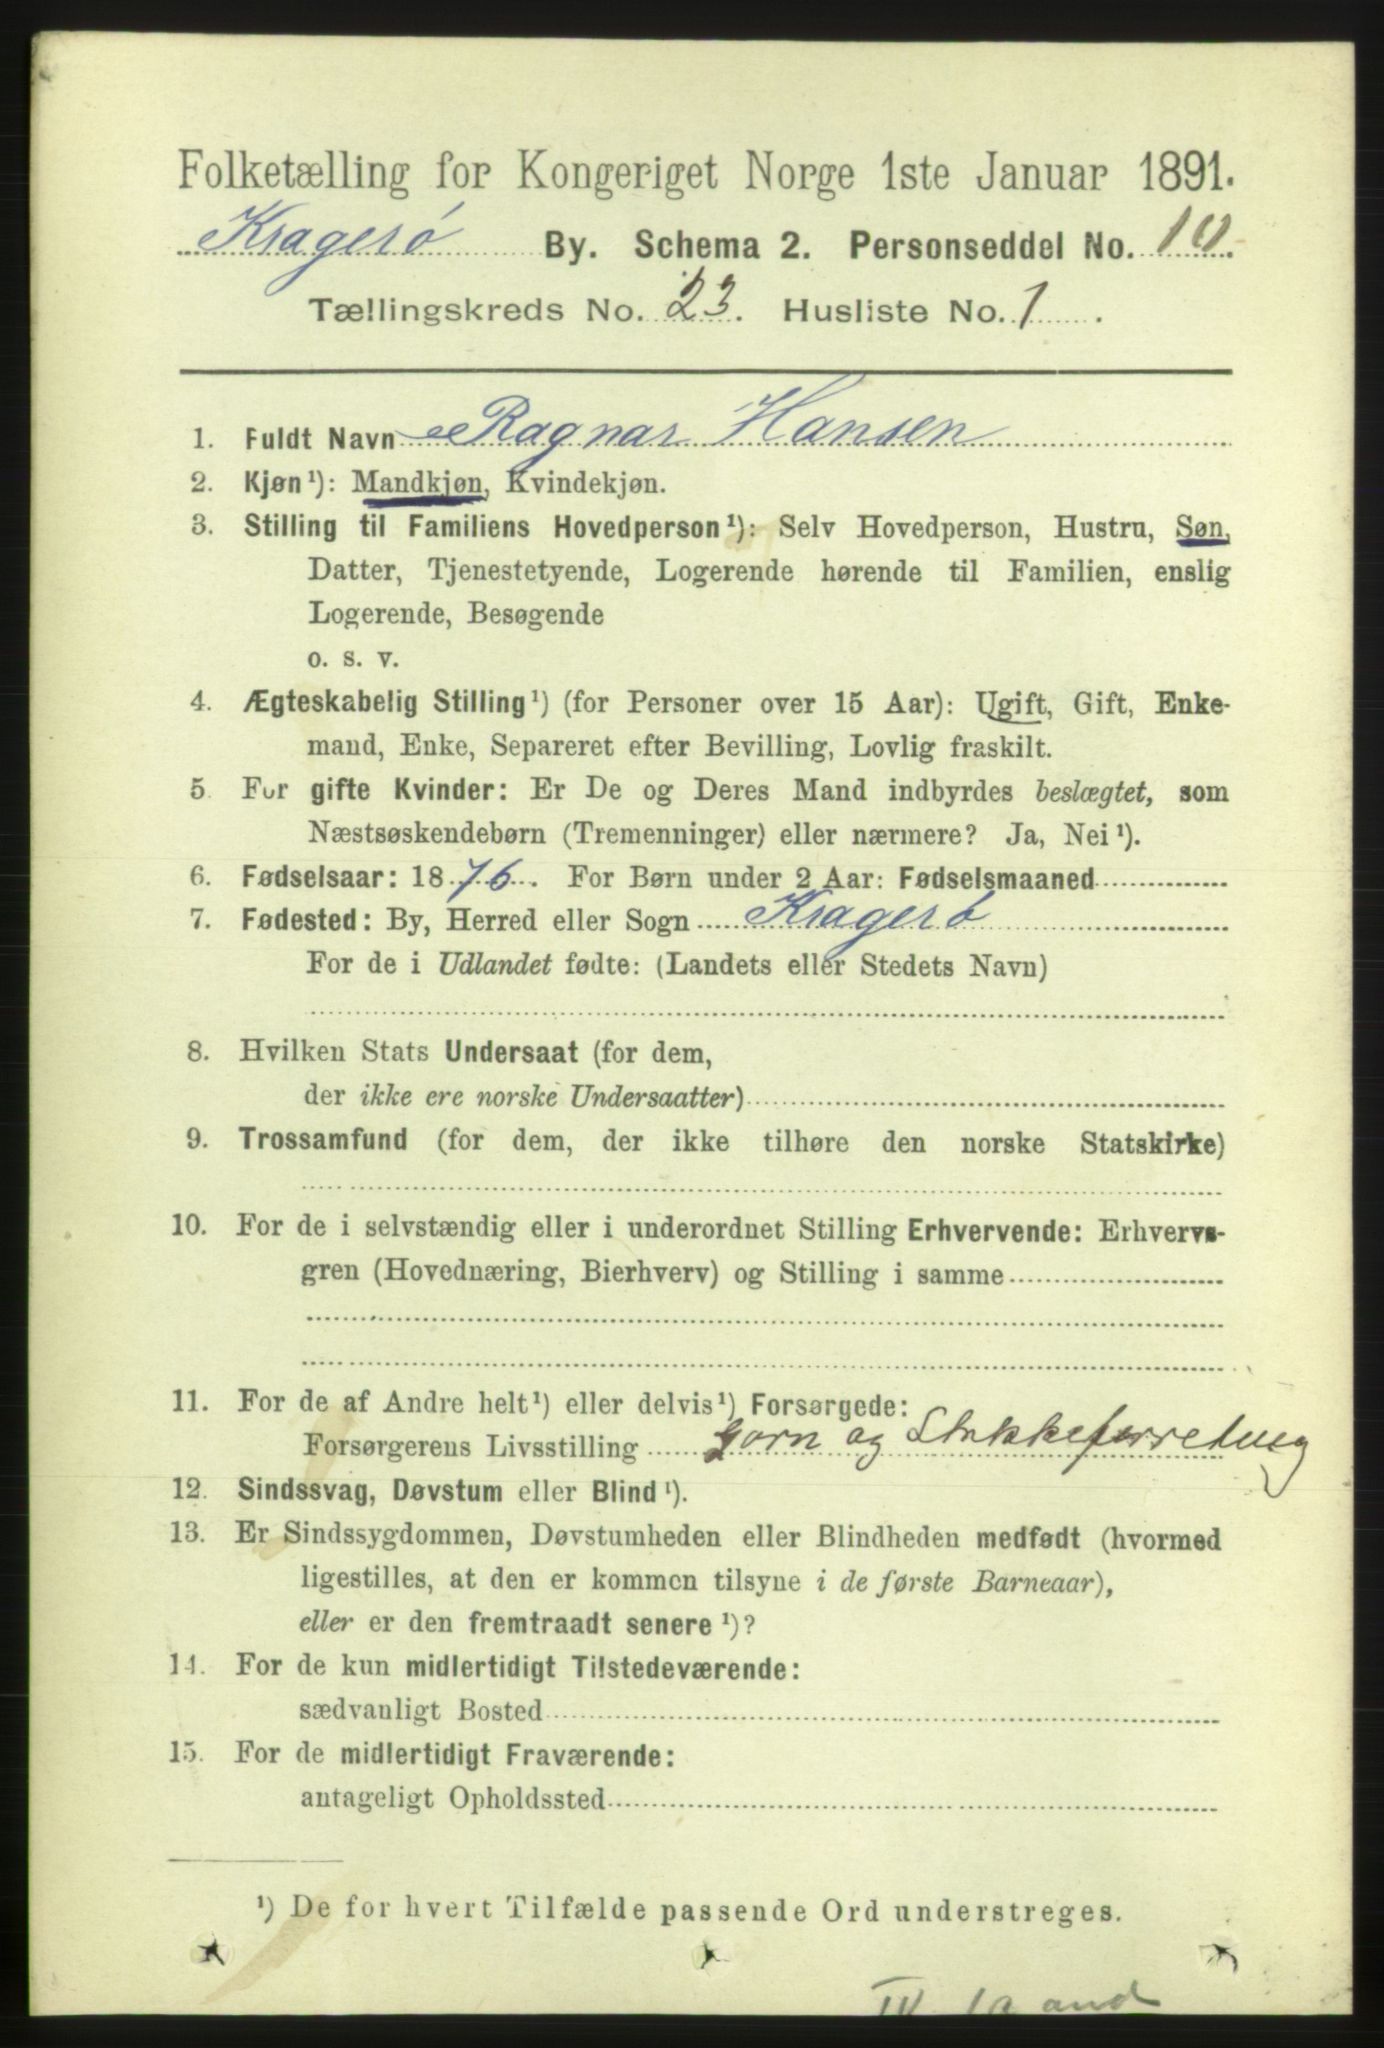 Folketælling for Kongeriget Norge 1ste Januar 1891.
Kragerö By. Schema 2. Personseddel No. 10.
Tællingskreds No. 23. Husliste No. 1.
1. Fuldt Navn Ragnar Hansen
2. Kjøn¹): Mandkjøn, Kvindekjøn.
3. Stilling til Familiens Hovedperson¹): Selv Hovedperson, Hustru, Søn,
Datter, Tjenestetyende, Logerende hørende til Familien, enslig
Logerende, Besøgende
o. s. v.
4. Ægteskabelig Stilling¹) (for Personer over 15 Aar): Ugift, Gift, Enke-
mand, Enke, Separeret efter Bevilling, Lovlig fraskilt.
5 For gifte Kvinder: Er De og Deres Mand indbyrdes beslægtet, som
Næstsøskendebørn (Tremenninger) eller nærmere? Ja, Nei¹).
6. Fødselsaar: 1876. For Børn under 2 Aar: Fødselsmaaned
7. Fødested: By, Herred eller Sogn Kragerö
For de i Udlandet fødte: (Landets eller Stedets Navn)
8. Hvilken Stats Undersaat (for dem,
der ikke ere norske Undersaatter)
9. Trossamfund (for dem, der ikke tilhøre den norske Statskirke)
10. For de i selvstændig eller i underordnet Stilling Erhvervende: Erhvervs-
gren (Hovednæring, Bierhverv) og Stilling i samme
11. For de af Andre helt¹) eller delvis¹) Forsørgede:
Forsørgerens Livsstilling Garn og
12. Sindssvag, Døvstum eller Blind¹).
13. Er Sindssygdommen, Døvstumheden eller Blindheden medfødt (hvormed
ligestilles, at den er kommen tilsyne i de første Barneaar),
eller er den fremtraadt senere¹)?
14. For de kun midlertidigt Tilstedeværende:
sædvanligt Bosted
15. For de midlertidigt Fraværende:
antageligt Opholdssted
¹) De for hvert Tilfælde passende Ord understreges.